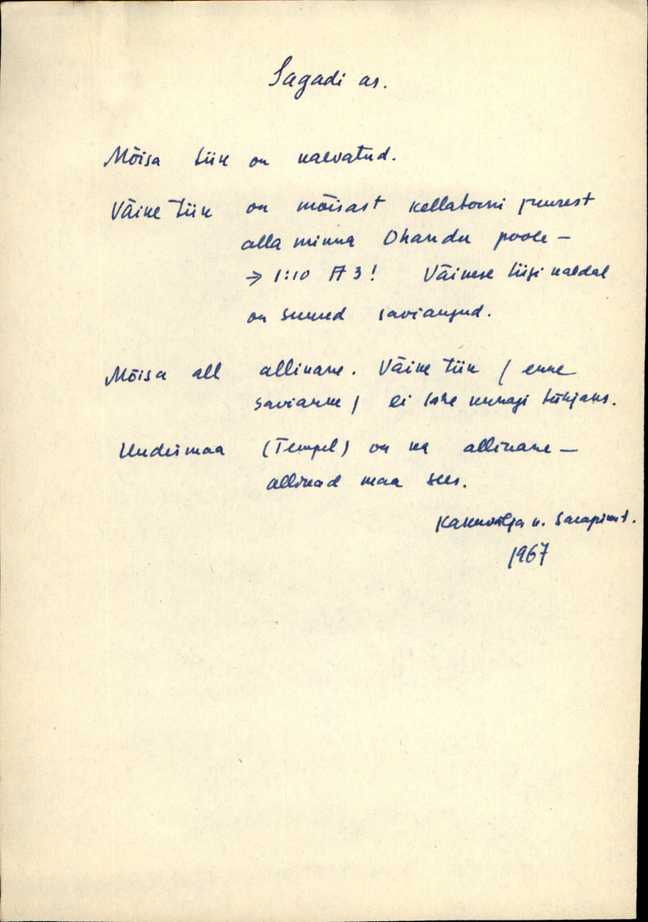 Sagadi as.
Mõisa tiik on kaevatud.
Väike tiik on mõisast kellatorni juurest
alla minna Ohandu poole –
→ 1:10 A3! Väikese tiigi kaldal
on suured saviaugud.
Mõisa all allikane. Väike tiik / enne
saviauk / ei lähe kunagi tühjaks.
Uudismaa (Tempel) on ka allikane –
allikad maa sees.
1967